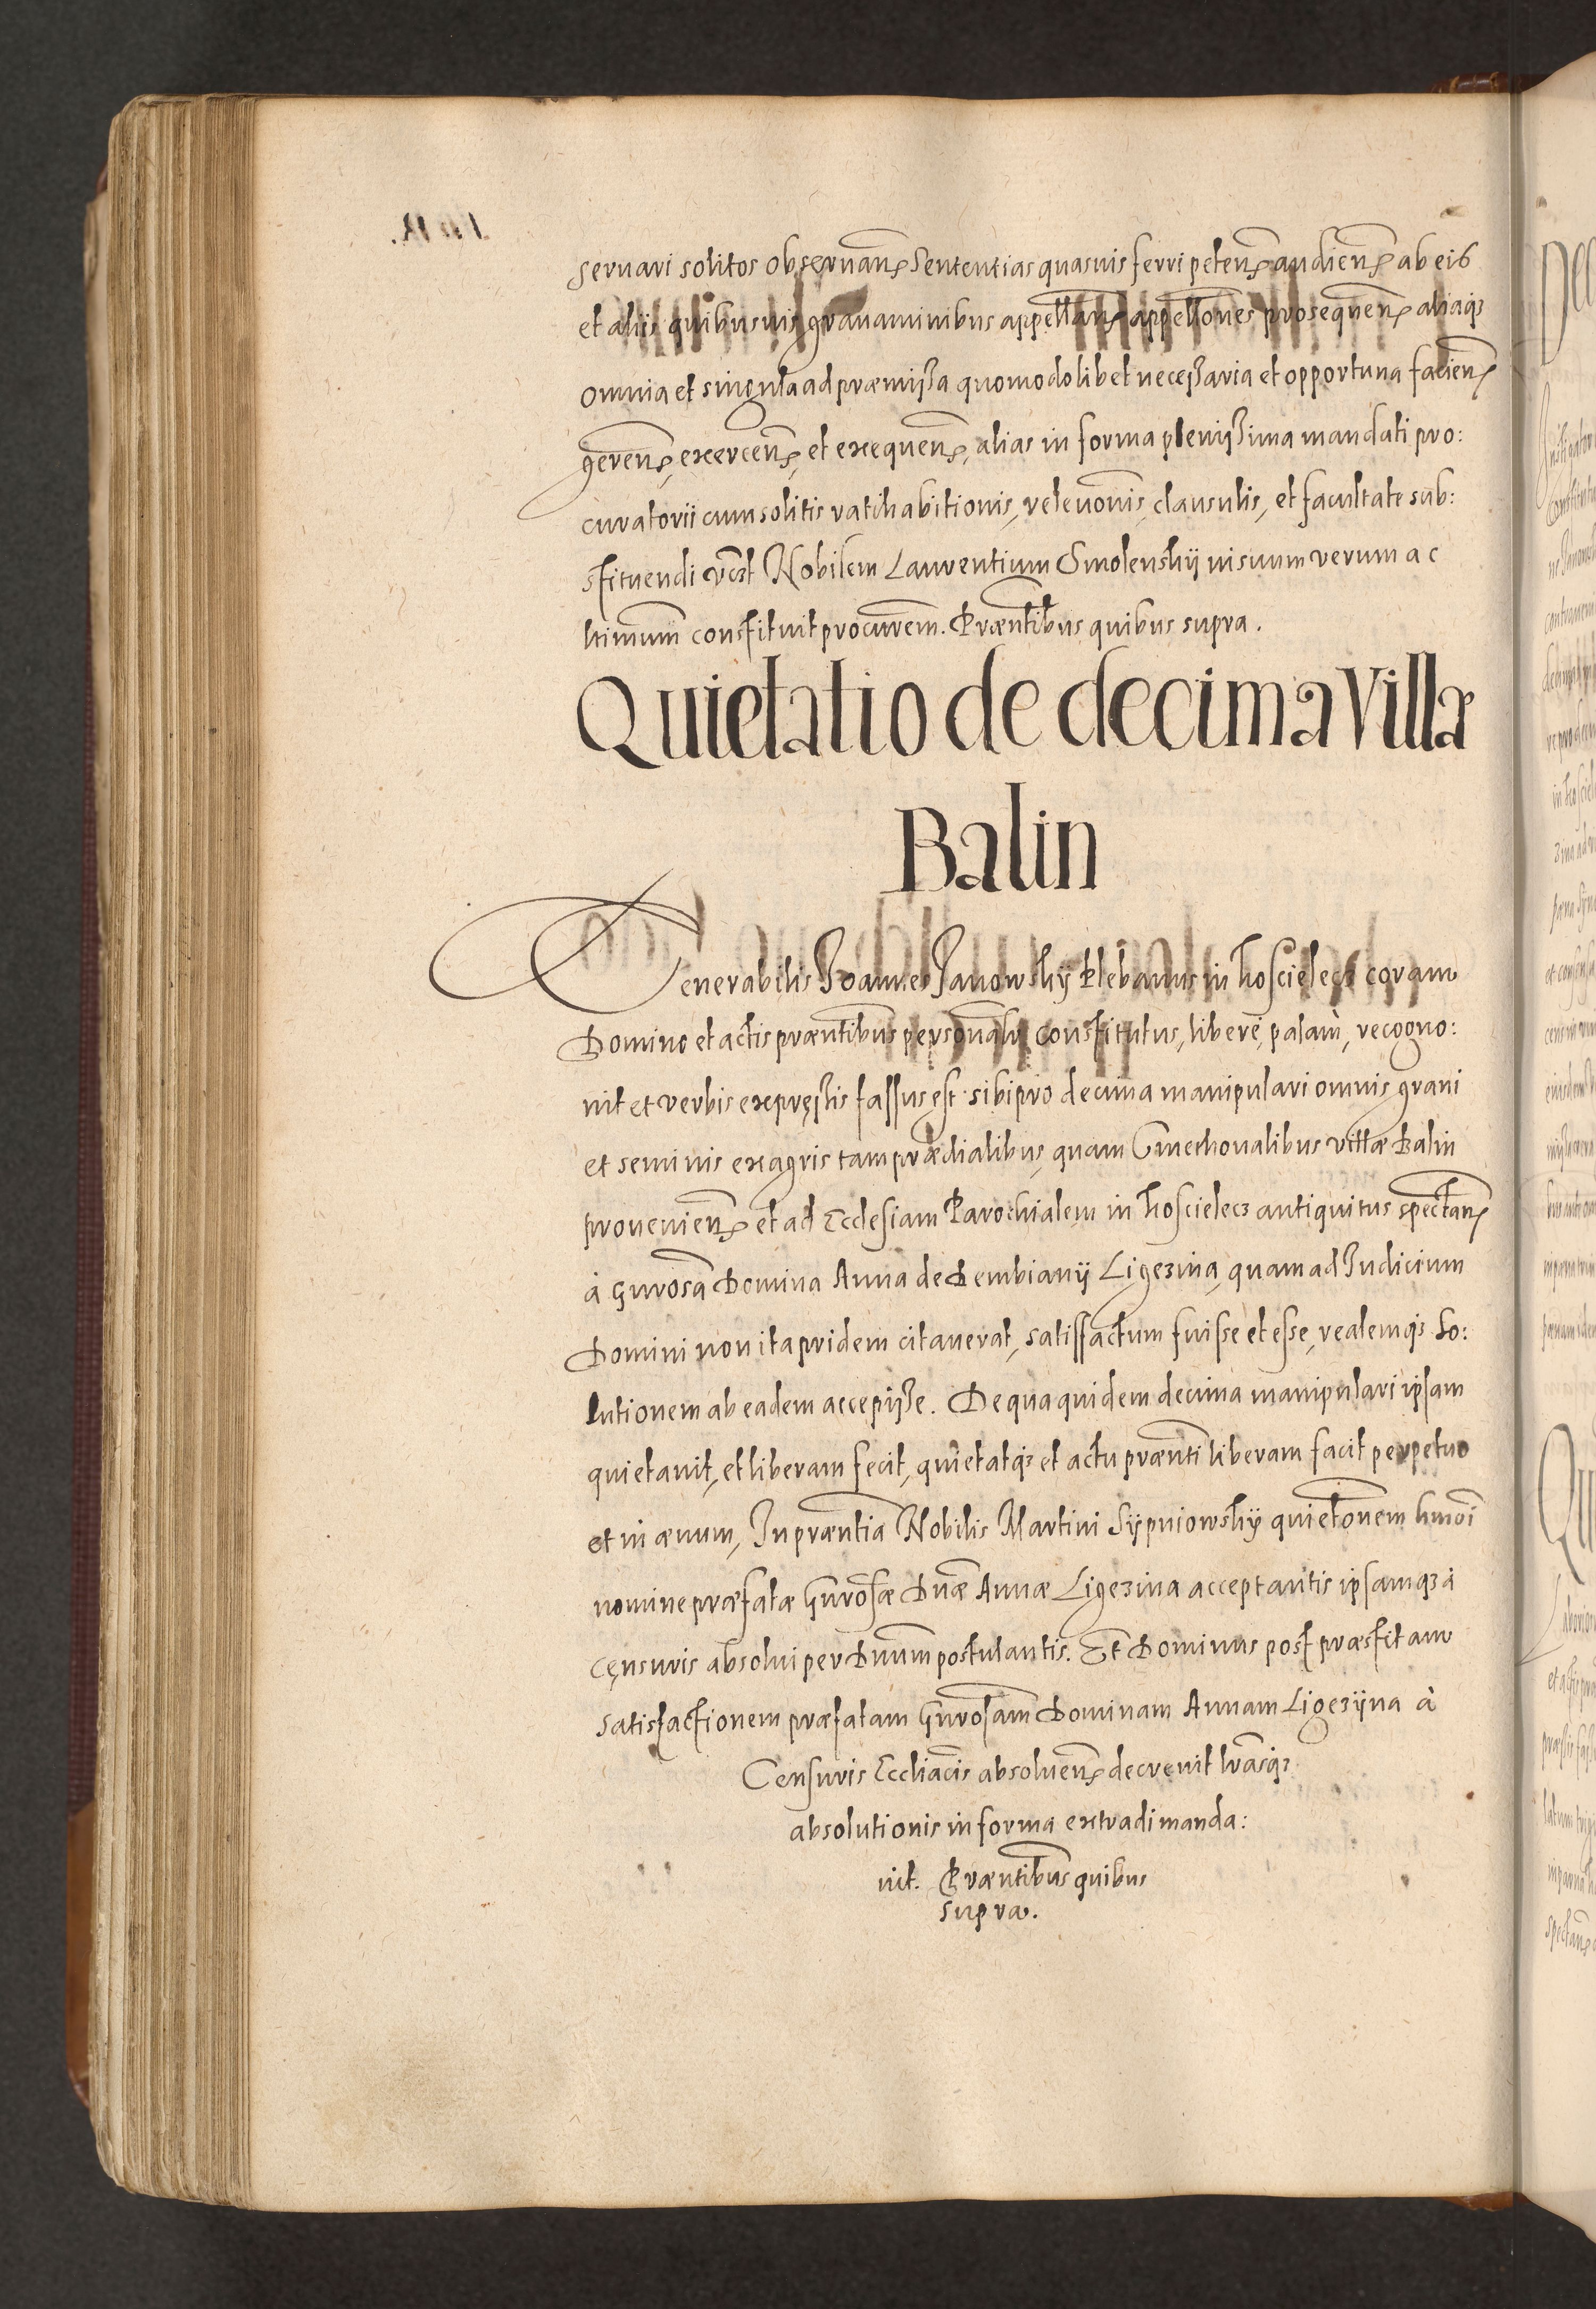 seruari solitos obseruanꝭ Sententias quasuis ferri petenꝭ audienꝭ ab eis
et aliis quibusuis grauaminibus appellanꝭ appellones prosequenꝭ aliaqꝫ
omnia et singula ad præmissa quomodolibet necessaria et opportuna facienꝭ
gerenꝭ, exercenꝭ, et exequenꝭ, alias in forma plenissima mandati pro:
curatorii cum solitis ratihabitionis, releuonis, clausulis, et facultate sub:
stituendi Nobilem Laurentium Smolenskÿ in suum verum ac
ltimum constituit procurem. Præntibus quibus supra.
Quietatio de decima Villæ
Balin
Venerabilis Joannes Janowskÿ Plebanus in Koscielecz coram
Domino et actis præntibus personalr constitutus, libere, palam, recogno:
uit et verbis expressis fassus est sibi pro decima manipulari omnis grani
et seminis ex agris tam prædialibus, quam Cmethonalibus villæ Balin
prouenienꝭ et ad Ecclesiam Parochialem in Koscielecz antiquitus spectanꝭ
à Gnrosa Domina Anna de Dembianÿ Ligezina, quam ad Judicium
Domini non ita pridem citauerat, satisfactum fuisse et esse, realemqꝫ So:
lutionem ab eadem accepisse. De qua quidem decima manipulari ipsam
quietauit, et liberam fecit, quietatqꝫ et actu prænti liberam facit perpetuo
et in æuum, In præntia Nobilis Martini Sÿpniowskÿ quietonem hmoi
nomine præfatæ Gnrosæ Dnæ Annæ Ligezina acceptantis ipsamqꝫ à
censuris absolui per Dnum postulantis. Et Dominus post præstitam
satisfactionem præfatam Gnrosam Dominam Annam Ligezÿna à
Censuris Eccliacis absoluenꝭ decreuit lrasqꝫ
absolutionis in forma extradi manda:
uit. Præntibus quibus
supra.